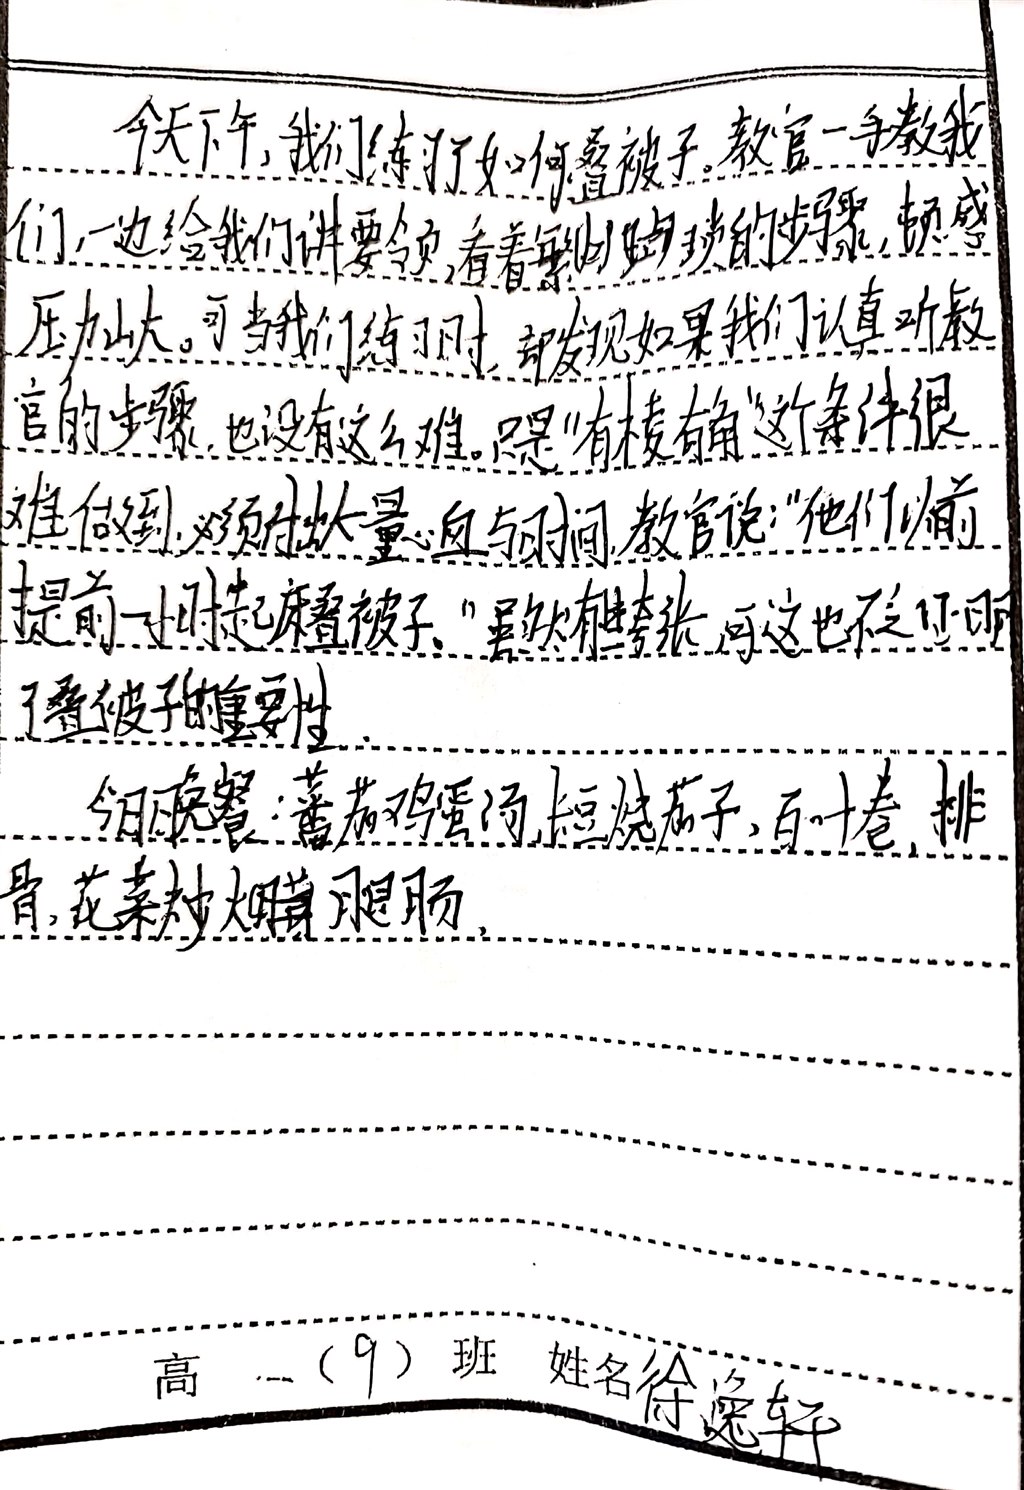 今天下午，我们练习了如何叠被子。教官一手教我
们，一边给我们讲要领，看着繁琐的步骤，顿感
压力山大。可当我们练习时，却发现如果我们认真听教
官的步骤，也没有这么难。只是“有棱有角”这个条件很
难做到，必须付出大量心血与时间，教官说：“他们以前
提前一小时起床叠被子。”虽然有些夸张，可这也不乏证明
了叠被子的重要性.
今日晚餐：蕃茄鸡蛋汤，红烧茄子，百叶卷，排
骨，花菜炒火腿肠，
高一（9）班 姓名徐逸轩